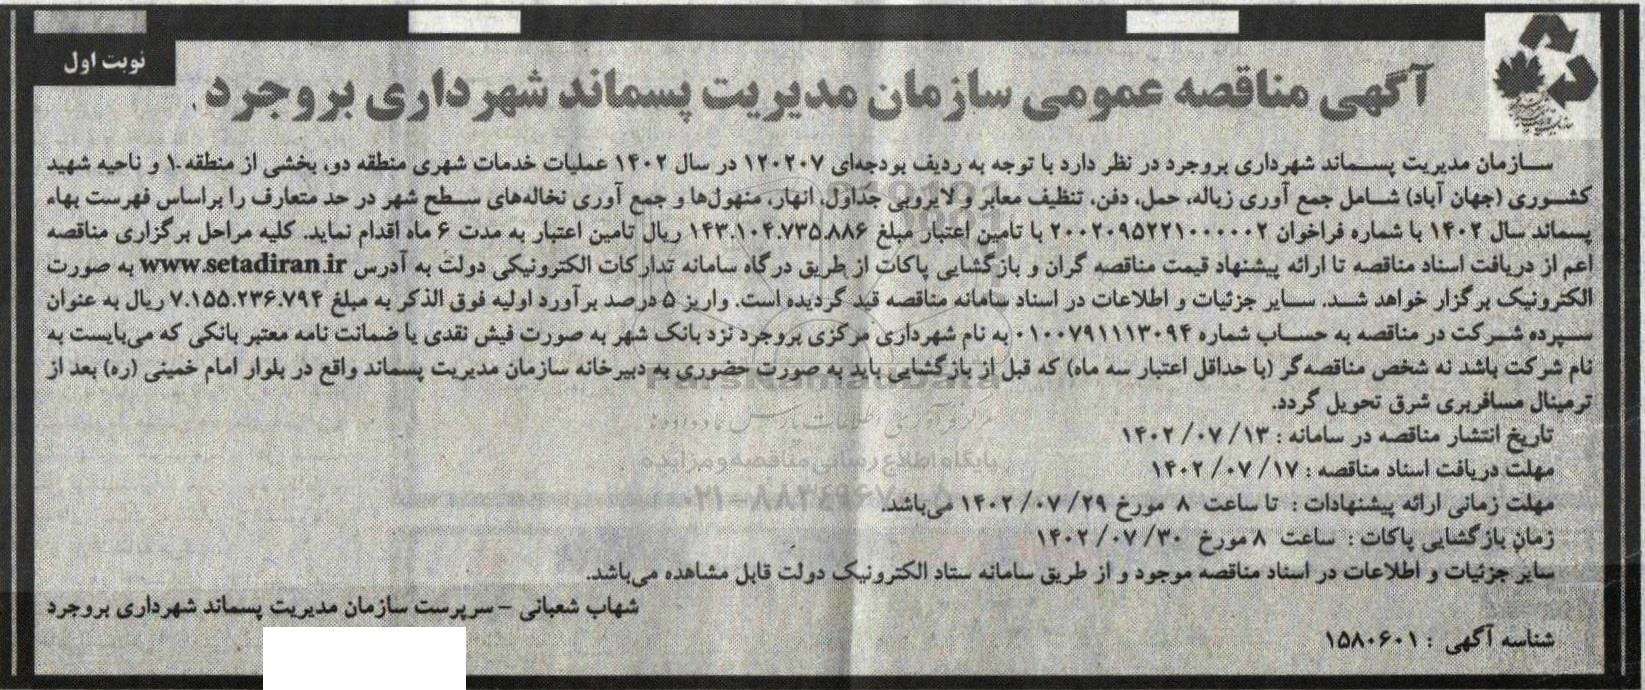 نوبت اول
آگهی مناقصه عمومی سازمان مدیریت پسماند شهرداری بروجرد
سازمان مدیریت پسماند شهرداری بروجرد در نظر دارد با توجه به ردیف بودجه‌ای ۱۲۰۲۰۷ در سال ۱۴۰۲ عملیات خدمات شهری منطقه دو، بخشی از منطقه ۱۰ و ناحیه شهید
کشوری (جهان آباد) شامل جمع آوری زباله، حمل، دفن، تنظیف معابر و لایروبی جداول، انهار، منهول‌ها و جمع آوری نخاله‌های سطح شهر در حد متعارف را براساس فهرست بهاء
پسماند سال ۱۴۰۲ با شماره فراخوان ۲۰۰۲۰۹۵۲۲۱۰۰۰۰۰۲ با تامین اعتبار مبلغ ۱۴۳.۱۰۴.۷۳۵.۸۸۶ ریال تامین اعتبار به مدت ۶ ماه اقدام نماید. کلیه مراحل برگزاری مناقصه
اعم از دریافت اسناد مناقصه تا ارائه پیشنهاد قیمت مناقصه گران و بازگشایی پاکات از طریق درگاه سامانه تدارکات الکترونیکی دولت به آدرس www.setadiran.ir به صورت
الکترونیک برگزار خواهد شد. سایر جزئیات و اطلاعات در اسناد سامانه مناقصه قید گردیده است. واریز ۵ درصد برآورد اولیه فوق الذکر به مبلغ ۷.۱۵۵.۲۳۶.۷۹۴ ریال به عنوان
سپرده شرکت در مناقصه به حساب شماره ۰۱۰۰۷۹۱۱۱۳۰۹۴ به نام شهرداری مرکزی بروجرد نزد بانک شهر به صورت فیش نقدی یا ضمانت نامه معتبر بانکی که می‌بایست به
نام شرکت باشد نه شخص مناقصه‌گر (با حداقل اعتبار سه ماه) که قبل از بازگشایی باید به صورت حضوری به دبیرخانه سازمان مدیریت پسماند واقع در بلوار امام خمینی (ره) بعد از
ترمینال مسافربری شرق تحویل گردد.
تاریخ انتشار مناقصه در سامانه : ۱۳ /۰۷ /۱۴۰۲
مهلت دریافت اسناد مناقصه : ۱۷ /۰۷ /۱۴۰۲
مهلت زمانی ارائه پیشنهادات : تا ساعت ۸ مورخ ۲۹ /۰۷ /۱۴۰۲ می‌باشد.
زمان بازگشایی پاکات : ساعت ۸ مورخ ۳۰ /۰۷ /۱۴۰۲
سایر جزئیات و اطلاعات در اسناد مناقصه موجود و از طریق سامانه ستاد الکترونیک دولت قابل مشاهده می‌باشد.
شهاب شعبانی – سرپرست سازمان مدیریت پسماند شهرداری بروجرد
شناسه آگهی : ۱۵۸۰۶۰۱